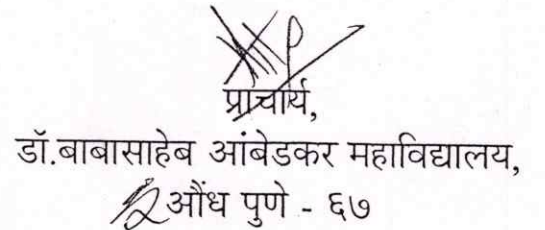 प्राचार्य,
डॉ.बाबासाहेब आंबेडकर महाविद्यालय,
औंध पुणे - ६७